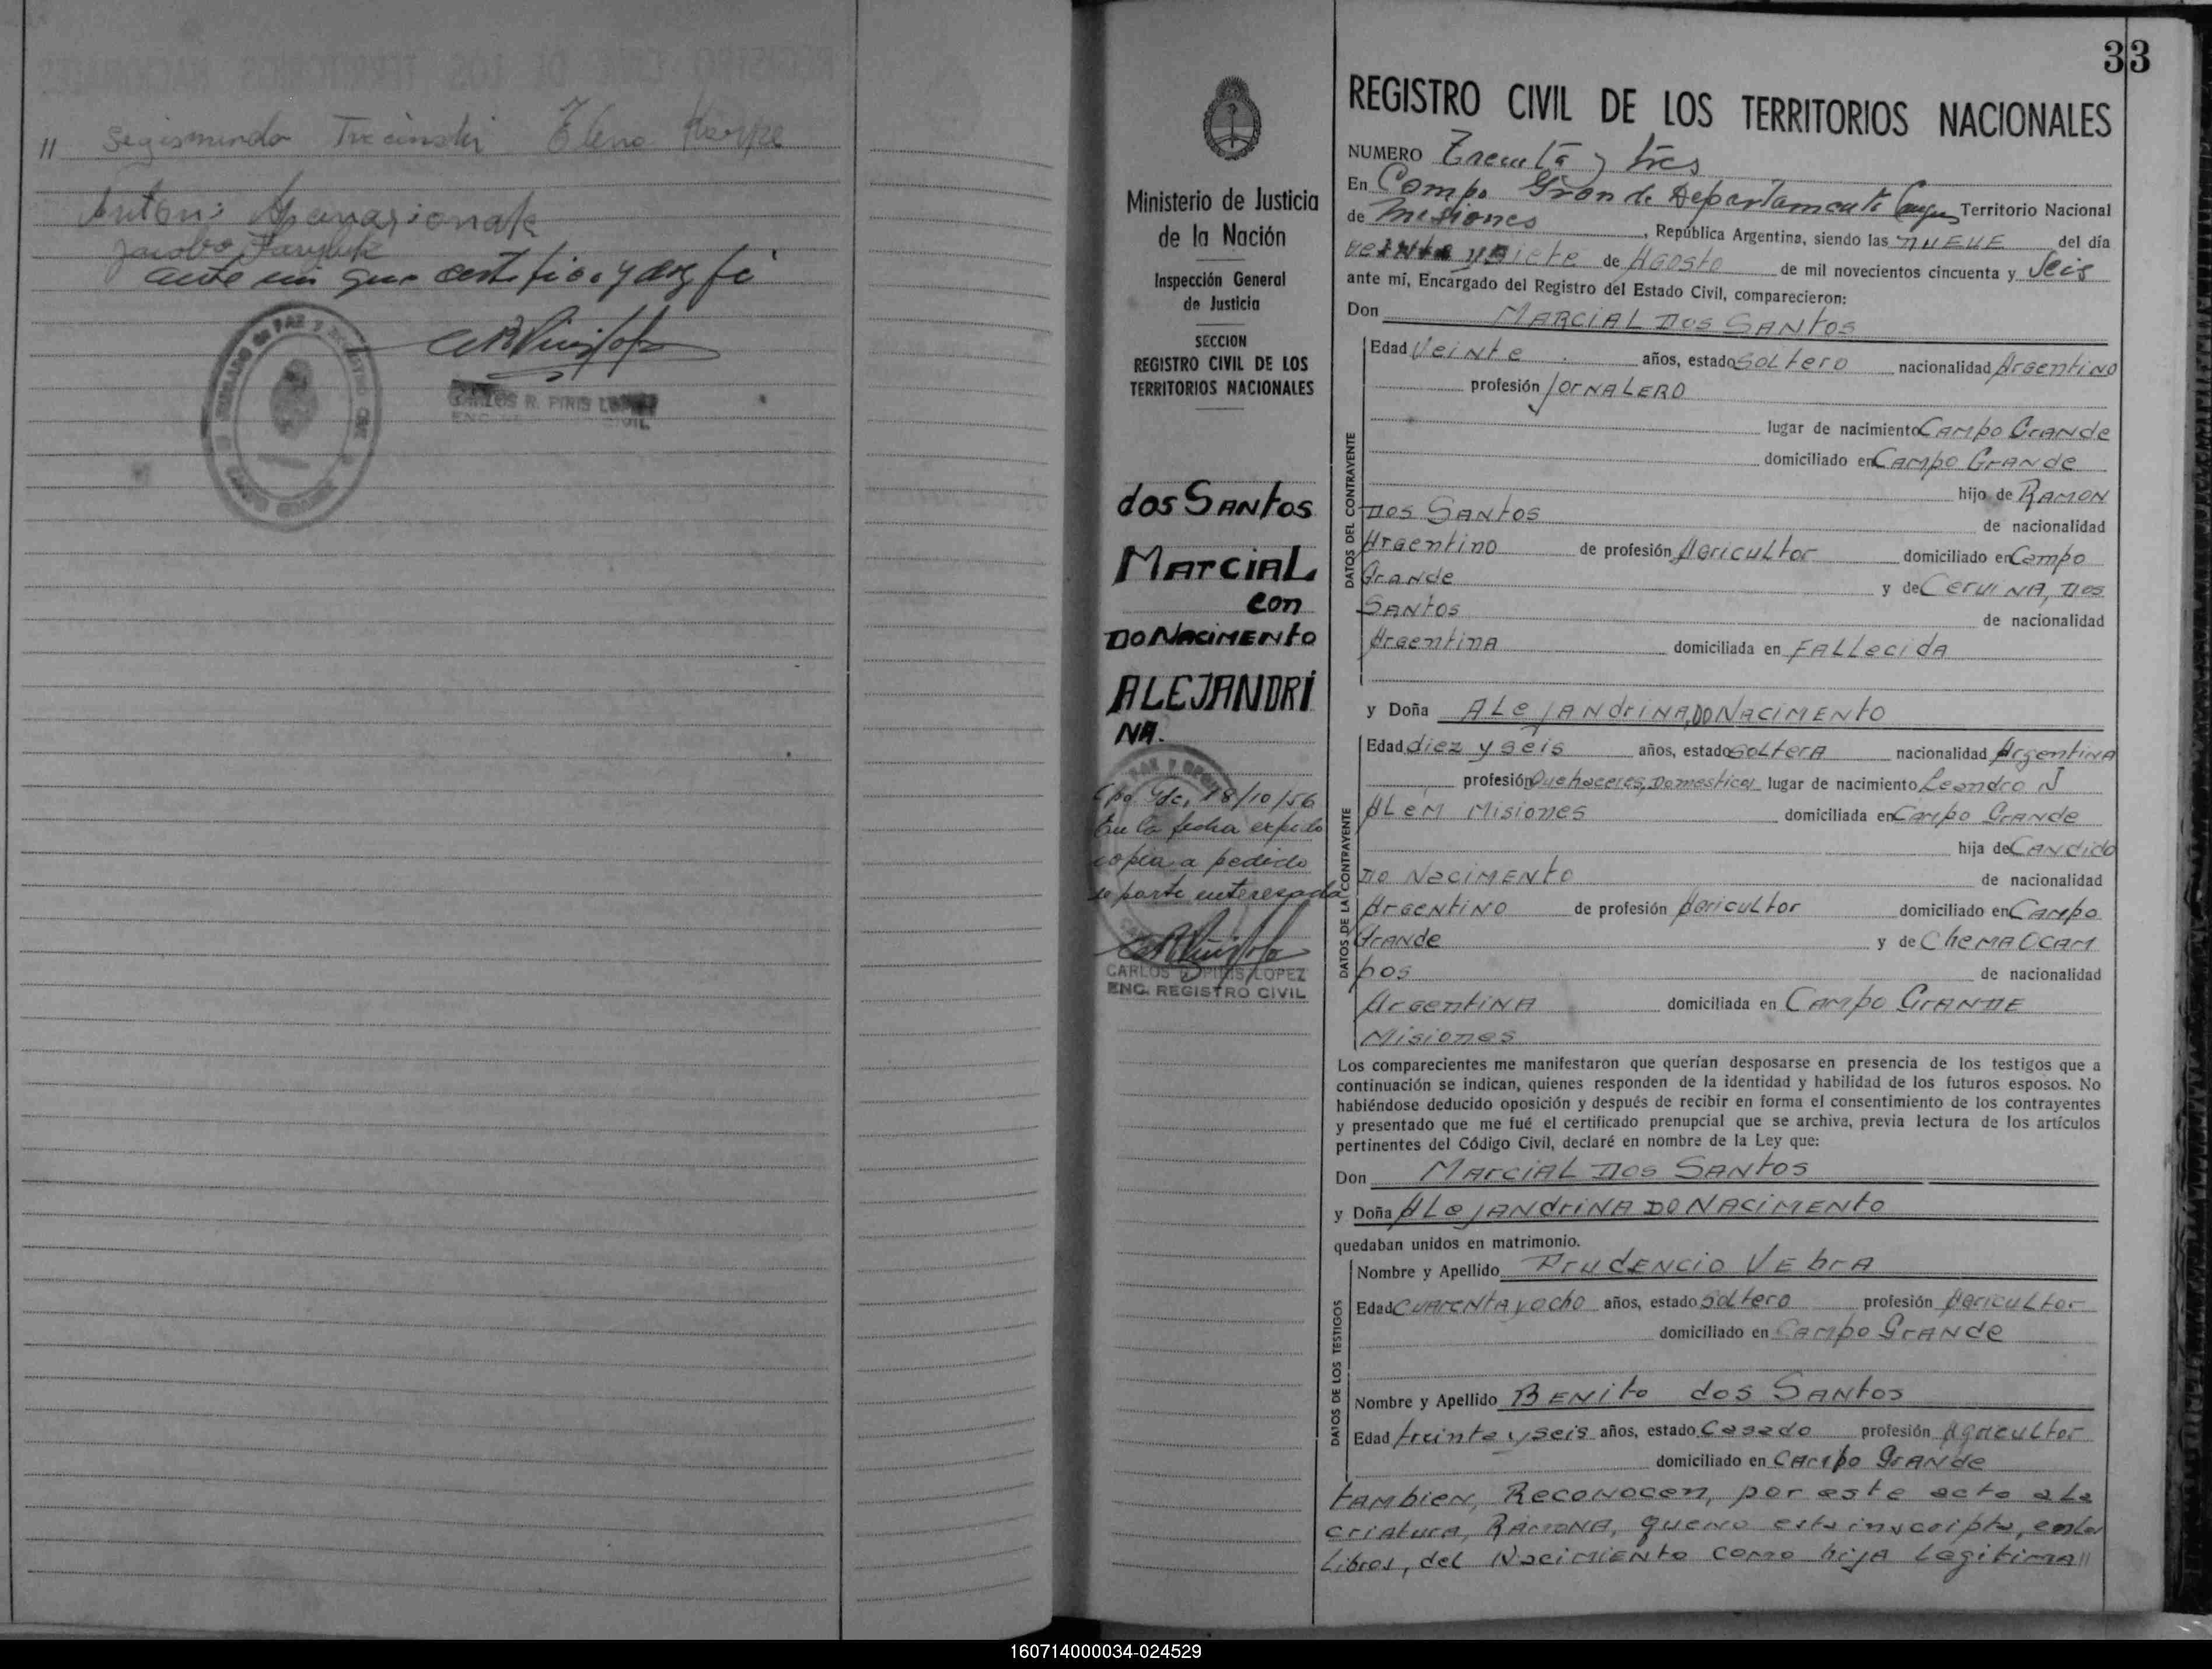 " Segismundo Trecinski Elena Karpe
Antoni
Jacobo
ante mi que certifico y doy fé
CARLOS R. PIRIS LOPEZ
33
REGISTRO CIVIL DE LOS TERRITORIOS NACIONALES
NUMERO Treinta y tres
En Campo Grande Departamento Cainguas Territorio Nacional
de Misiones, República Argentina, siendo las NUEVE del día
veinte y siete de Agosto de mil novecientos cincuenta y Seis
ante mí, Encargado del Registro del Estado Civil, comparecieron:
Don MARCIAL DOS SANTOS
Edad Veinte años, estado SOLtero nacionalidad Argentino
profesión JORNALERO
lugar de nacimiento CAMPO GRANDE
domiciliado en CAMPO GRANDE
hijo de RAMON
DOS SANTOS de nacionalidad
Argentino de profesión Agricultor domiciliado en Campo
Grande y de Cervina, DOS
SANTOS de nacionalidad
Argentina domiciliada en FALLecida
y Doña ALeJANdriNA, DO NACIMENTO
Edad diez y seis años, estado SOLterA nacionalidad Argentina
profesión Quehaceres, Domesticos lugar de nacimiento Leandro N
ALEM Misiones domiciliada en Campo Grande
hija de CANdido
DO NACIMENTO de nacionalidad
ArgentiNO de profesión Agricultor domiciliado en Campo
Grande y de CheMA OCAM
pos de nacionalidad
ArgentiNA domiciliada en CAMPO GRANDE
Misiones
Los comparecientes me manifestaron que querían desposarse en presencia de los testigos que a
continuación se indican, quienes responden de la identidad y habilidad de los futuros esposos. No
habiéndose deducido oposición y después de recibir en forma el consentimiento de los contrayentes
y presentado que me fué el certificado prenupcial que se archiva, previa lectura de los artículos
pertinentes del Código Civil, declaré en nombre de la Ley que:
Don MArciAL DOS SANtOS
y Doña ALeJANdriNA DO NACIMENTO
quedaban unidos en matrimonio.
Nombre y Apellido PrudENCiO VEbrA
Edad CuarENtA y ocho años, estado SOLtero profesión Agricultor
domiciliado en Campo GRANde
Nombre y Apellido BENito dos SANtOS
Edad treinta y seis años, estado Casado profesión Agricultor
domiciliado en CAMPO GRANde
tAMbien, RecoNOcen, por este acto a La
criAturA, RAMONA, que no esta inscripta, en los
Libros, del NaciMiENto como hija Legitima "
DATOS DEL CONTRAYENTE
DATOS DE LA CONTRAYENTE
DATOS DE LOS TESTIGOS
Ministerio de Justicia
de la Nación
Inspección General
de Justicia
SECCION
REGISTRO CIVIL DE LOS
TERRITORIOS NACIONALES
dos SANtos
MArciAL
con
DO NACIMENTO
ALEJANDRI
NA.
Cpo. Gde. 18/10/56
En la fecha expido
copia a pedido
de parte interesada
CARLOS R. PIRIS LOPEZ
ENC. REGISTRO CIVIL
160714000034-024529